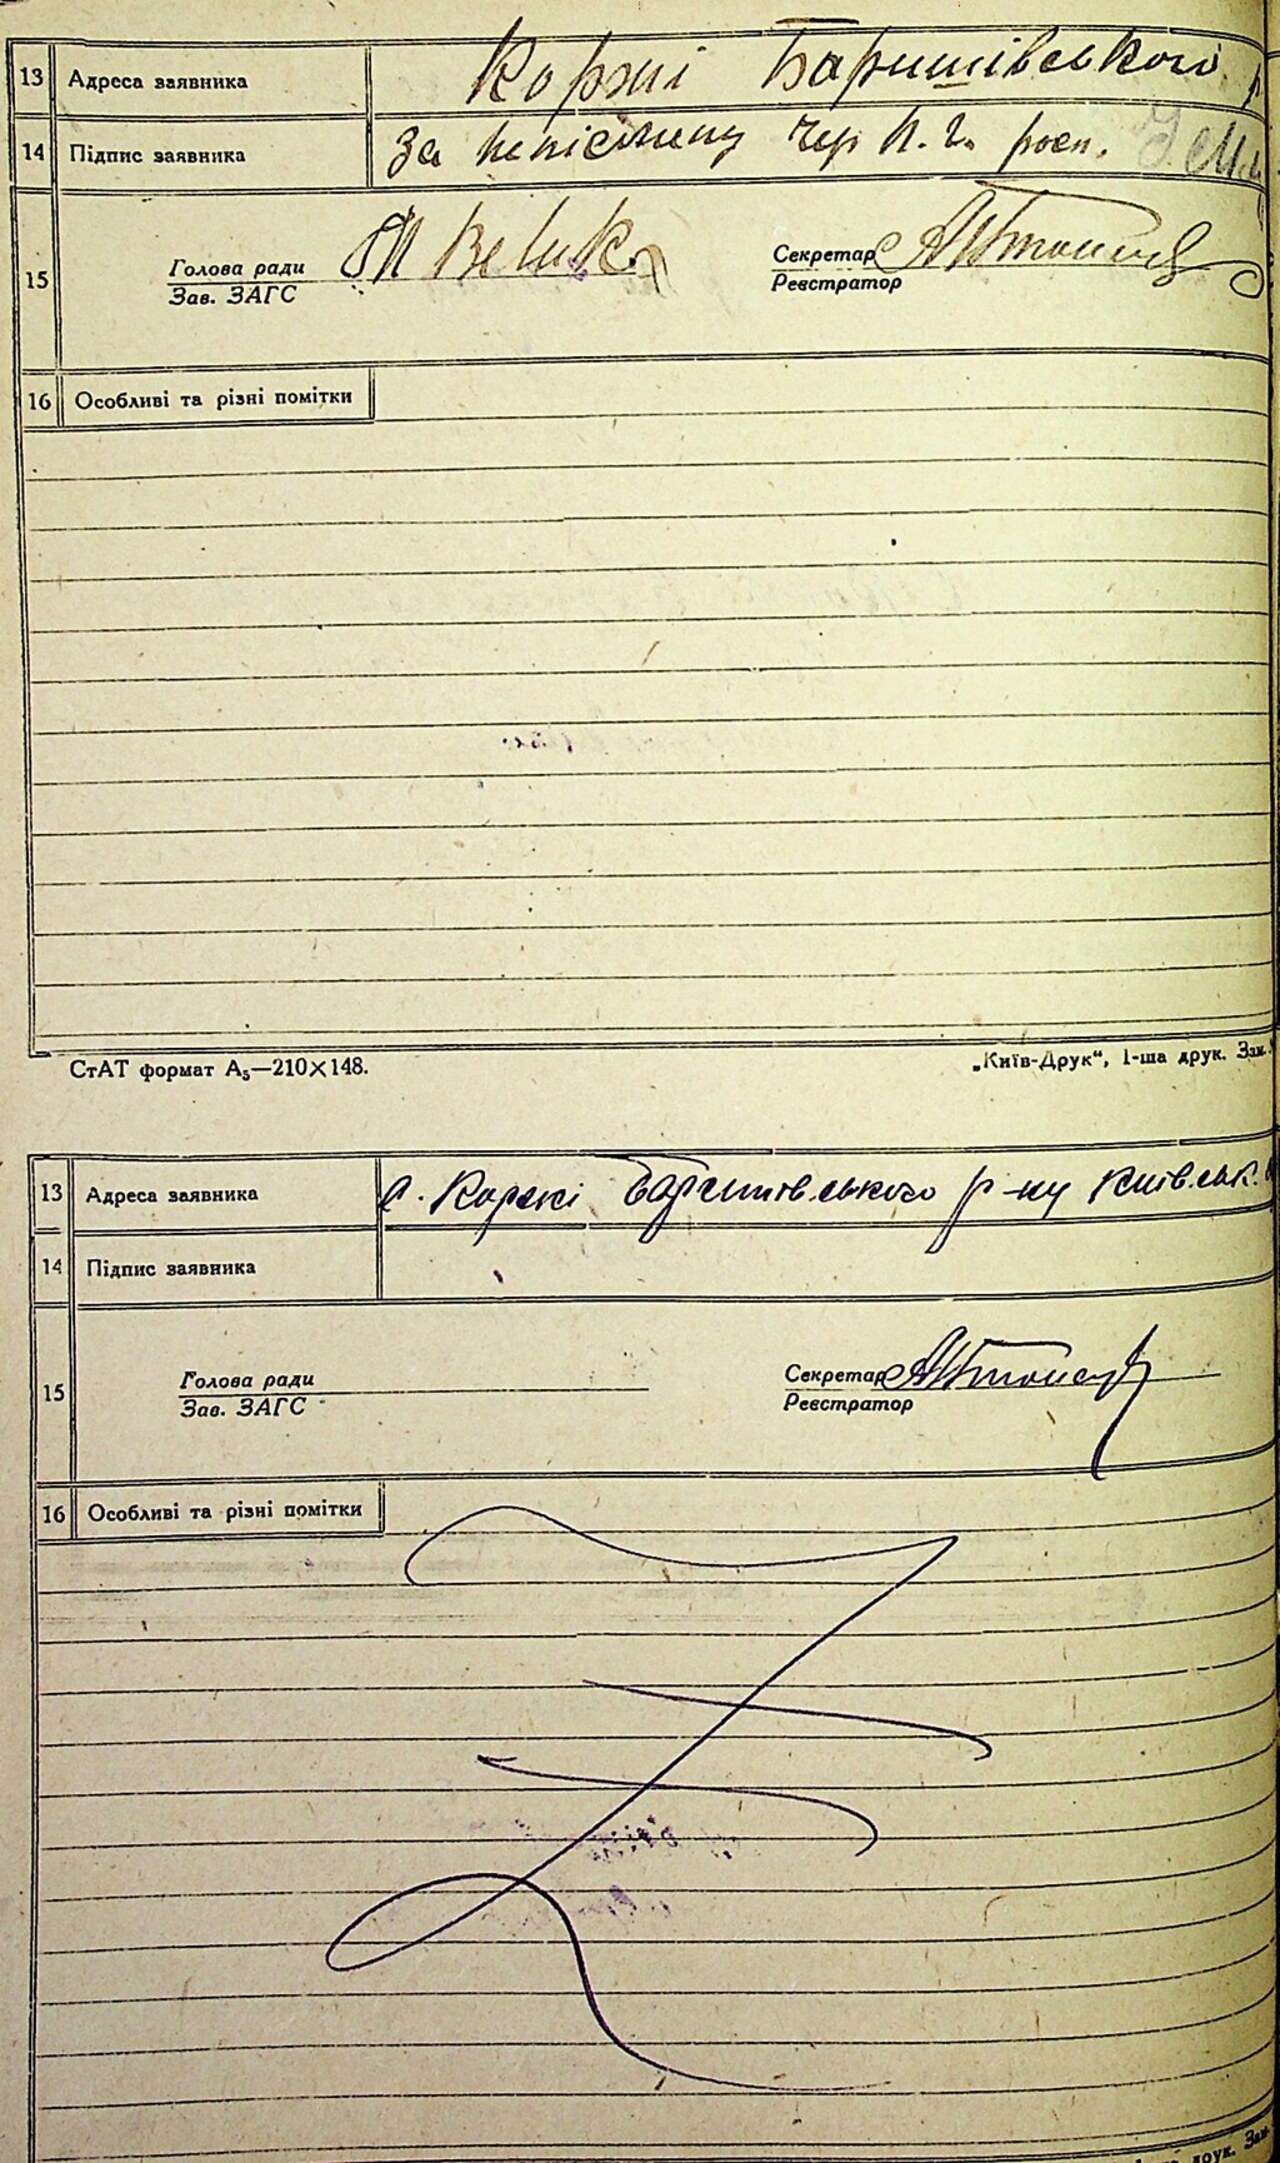 13 Адреса заявника Коржі Баришівського р
14 Підпис заявника За неписмену Чер П. г. росп.
15 Голова ради Секретар
Зав. ЗАГС Реєстратор
16 Особливі та різні помітки
СтАТ формат А₅—210×148. „Київ-Друк“, 1-ша друк. Зам.
13 Адреса заявника с. Коржі Баришівського р-ну Київськ.
14 Підпис заявника
15 Голова ради Секретар
Зав. ЗАГС Реєстратор
16 Особливі та різні помітки
друк. Зам.